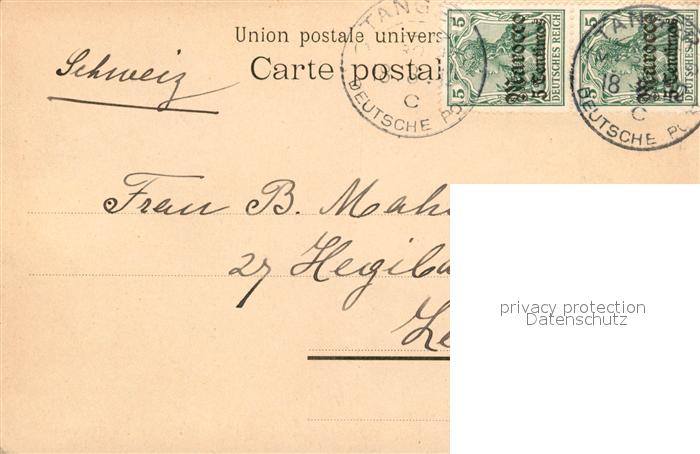 Union postale univers
Schweiz
Carte postal
TANG
DEUTSCHE PO
C
5
Marocco
5 Centimos
DEUTSCHES REICH
5
Marocco
5 Centimos
DEUTSCHES REICH
TANG
18
C
DEUTSCHE PO
Frau B. Mah
27 Hegiba
privacy protection
Datenschutz